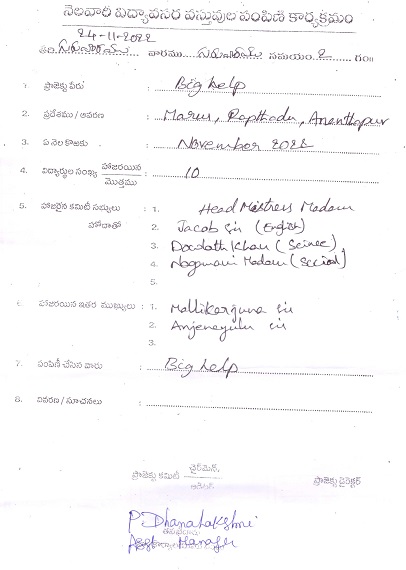 నెలవారి విద్యావసర వస్తువుల పంపిణి కార్యక్రమం
24-11-2022
తేది గురువారము వారము గురువారము సమయం 2 గం॥
1. ప్రాజెక్టు పేరు : Big help
2. ప్రదేశము / ఆవరణ : Marur, Rapthadu, Ananthapur
3. ఏ నెల కొఱకు : November 2022
4. విద్యార్థుల సంఖ్య హాజరయిన / మొత్తము : 10
5. హాజరైన కమిటీ సభ్యులు : 1. Head Mistress Madam
హోదాతో 2. Jacob sir (English)
3. Dowlath Khan (Scinec)
4. Nagamani Madam (Social)
5.
6. హాజరయిన ఇతర ముఖ్యులు : 1. Mallikarjuna sir
2. Anjeneyulu sir
3.
7. పంపిణీ చేసిన వారు : Big help
8. వివరణ / సూచనలు :
ప్రాజెక్టు కమిటీ ఛైర్మెన్.
ప్రాజెక్టు డైరెక్టర్
P. Dhanalakshmi
Asst. Manager